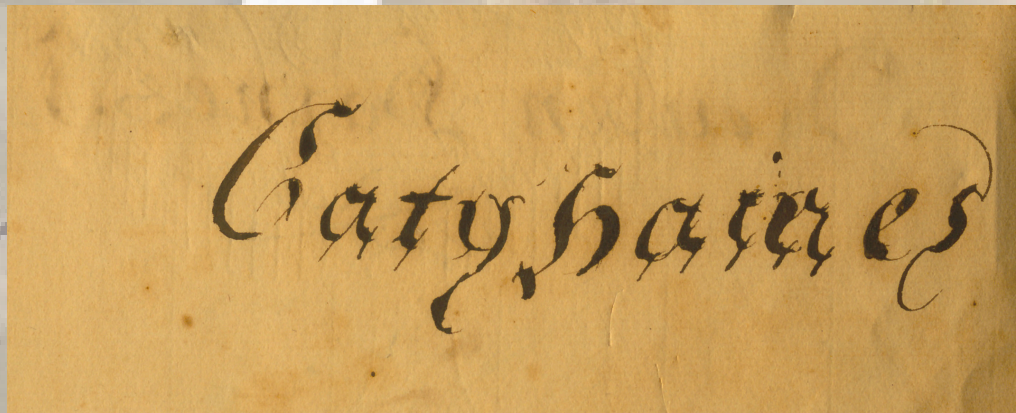 Caty haines